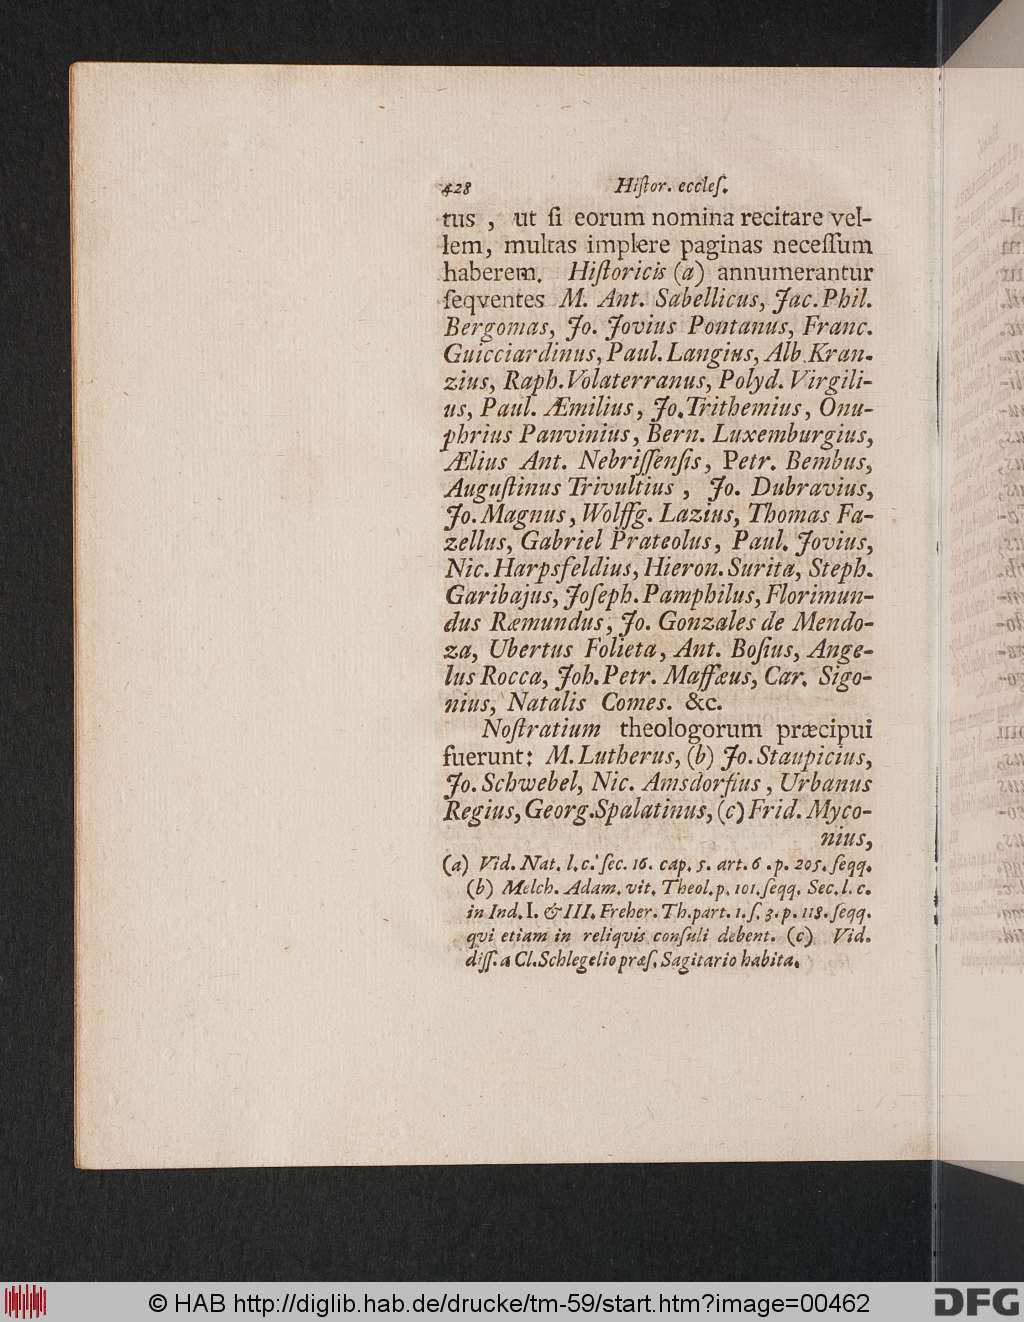 428 Hiſtor. eccleſ.
tus , ut ſi eorum nomina recitare vel-
lem, multas implere paginas neceſſum
haberem. Hiſtoricis (a) annumerantur
ſeqventes M. Ant. Sabellicus, Jac. Phil.
Bergomas, Jo. Jovius Pontanus, Franc.
Guicciardinus, Paul. Langius, Alb. Kran-
zius, Raph. Volaterranus, Polyd. Virgili-
us, Paul. Æmilius, Jo. Trithemius, Onu-
phrius Panvinius, Bern. Luxemburgius,
Ælius Ant. Nebriſſenſis, Petr. Bembus,
Auguſtinus Trivultius , Jo. Dubravius,
Jo. Magnus, Wolffg. Lazius, Thomas Fa-
zellus, Gabriel Prateolus, Paul. Jovius,
Nic. Harpsfeldius, Hieron. Surita, Steph.
Garibajus, Joſeph. Pamphilus, Florimun-
dus Ræmundus, Jo. Gonzales de Mendo-
za, Ubertus Folieta, Ant. Boſius, Ange-
lus Rocca, Joh. Petr. Maffæus, Car. Sigo-
nius, Natalis Comes. &c.
Noſtratium theologorum præcipui
fuerunt: M. Lutherus, (b) Jo. Staupicius,
Jo. Schwebel, Nic. Amsdorfius, Urbanus
Regius, Georg. Spalatinus, (c) Frid. Myco-
nius,
(a) Vid. Nat. l. c. ſec. 16. cap. 5. art. 6 . p. 205. ſeqq.
(b) Melch. Adam. vit. Theol. p. 101. ſeqq. Sec. l. c.
in Ind. I. & III. Freher. Th. part. 1. ſ. 3. p. 118. ſeqq.
qvi etiam in reliqvis conſuli debent. (c) Vid.
diſſ. a Cl. Schlegelio præſ. Sagitario habita.
© HAB http://diglib.hab.de/drucke/tm-59/start.htm?image=00462
DFG